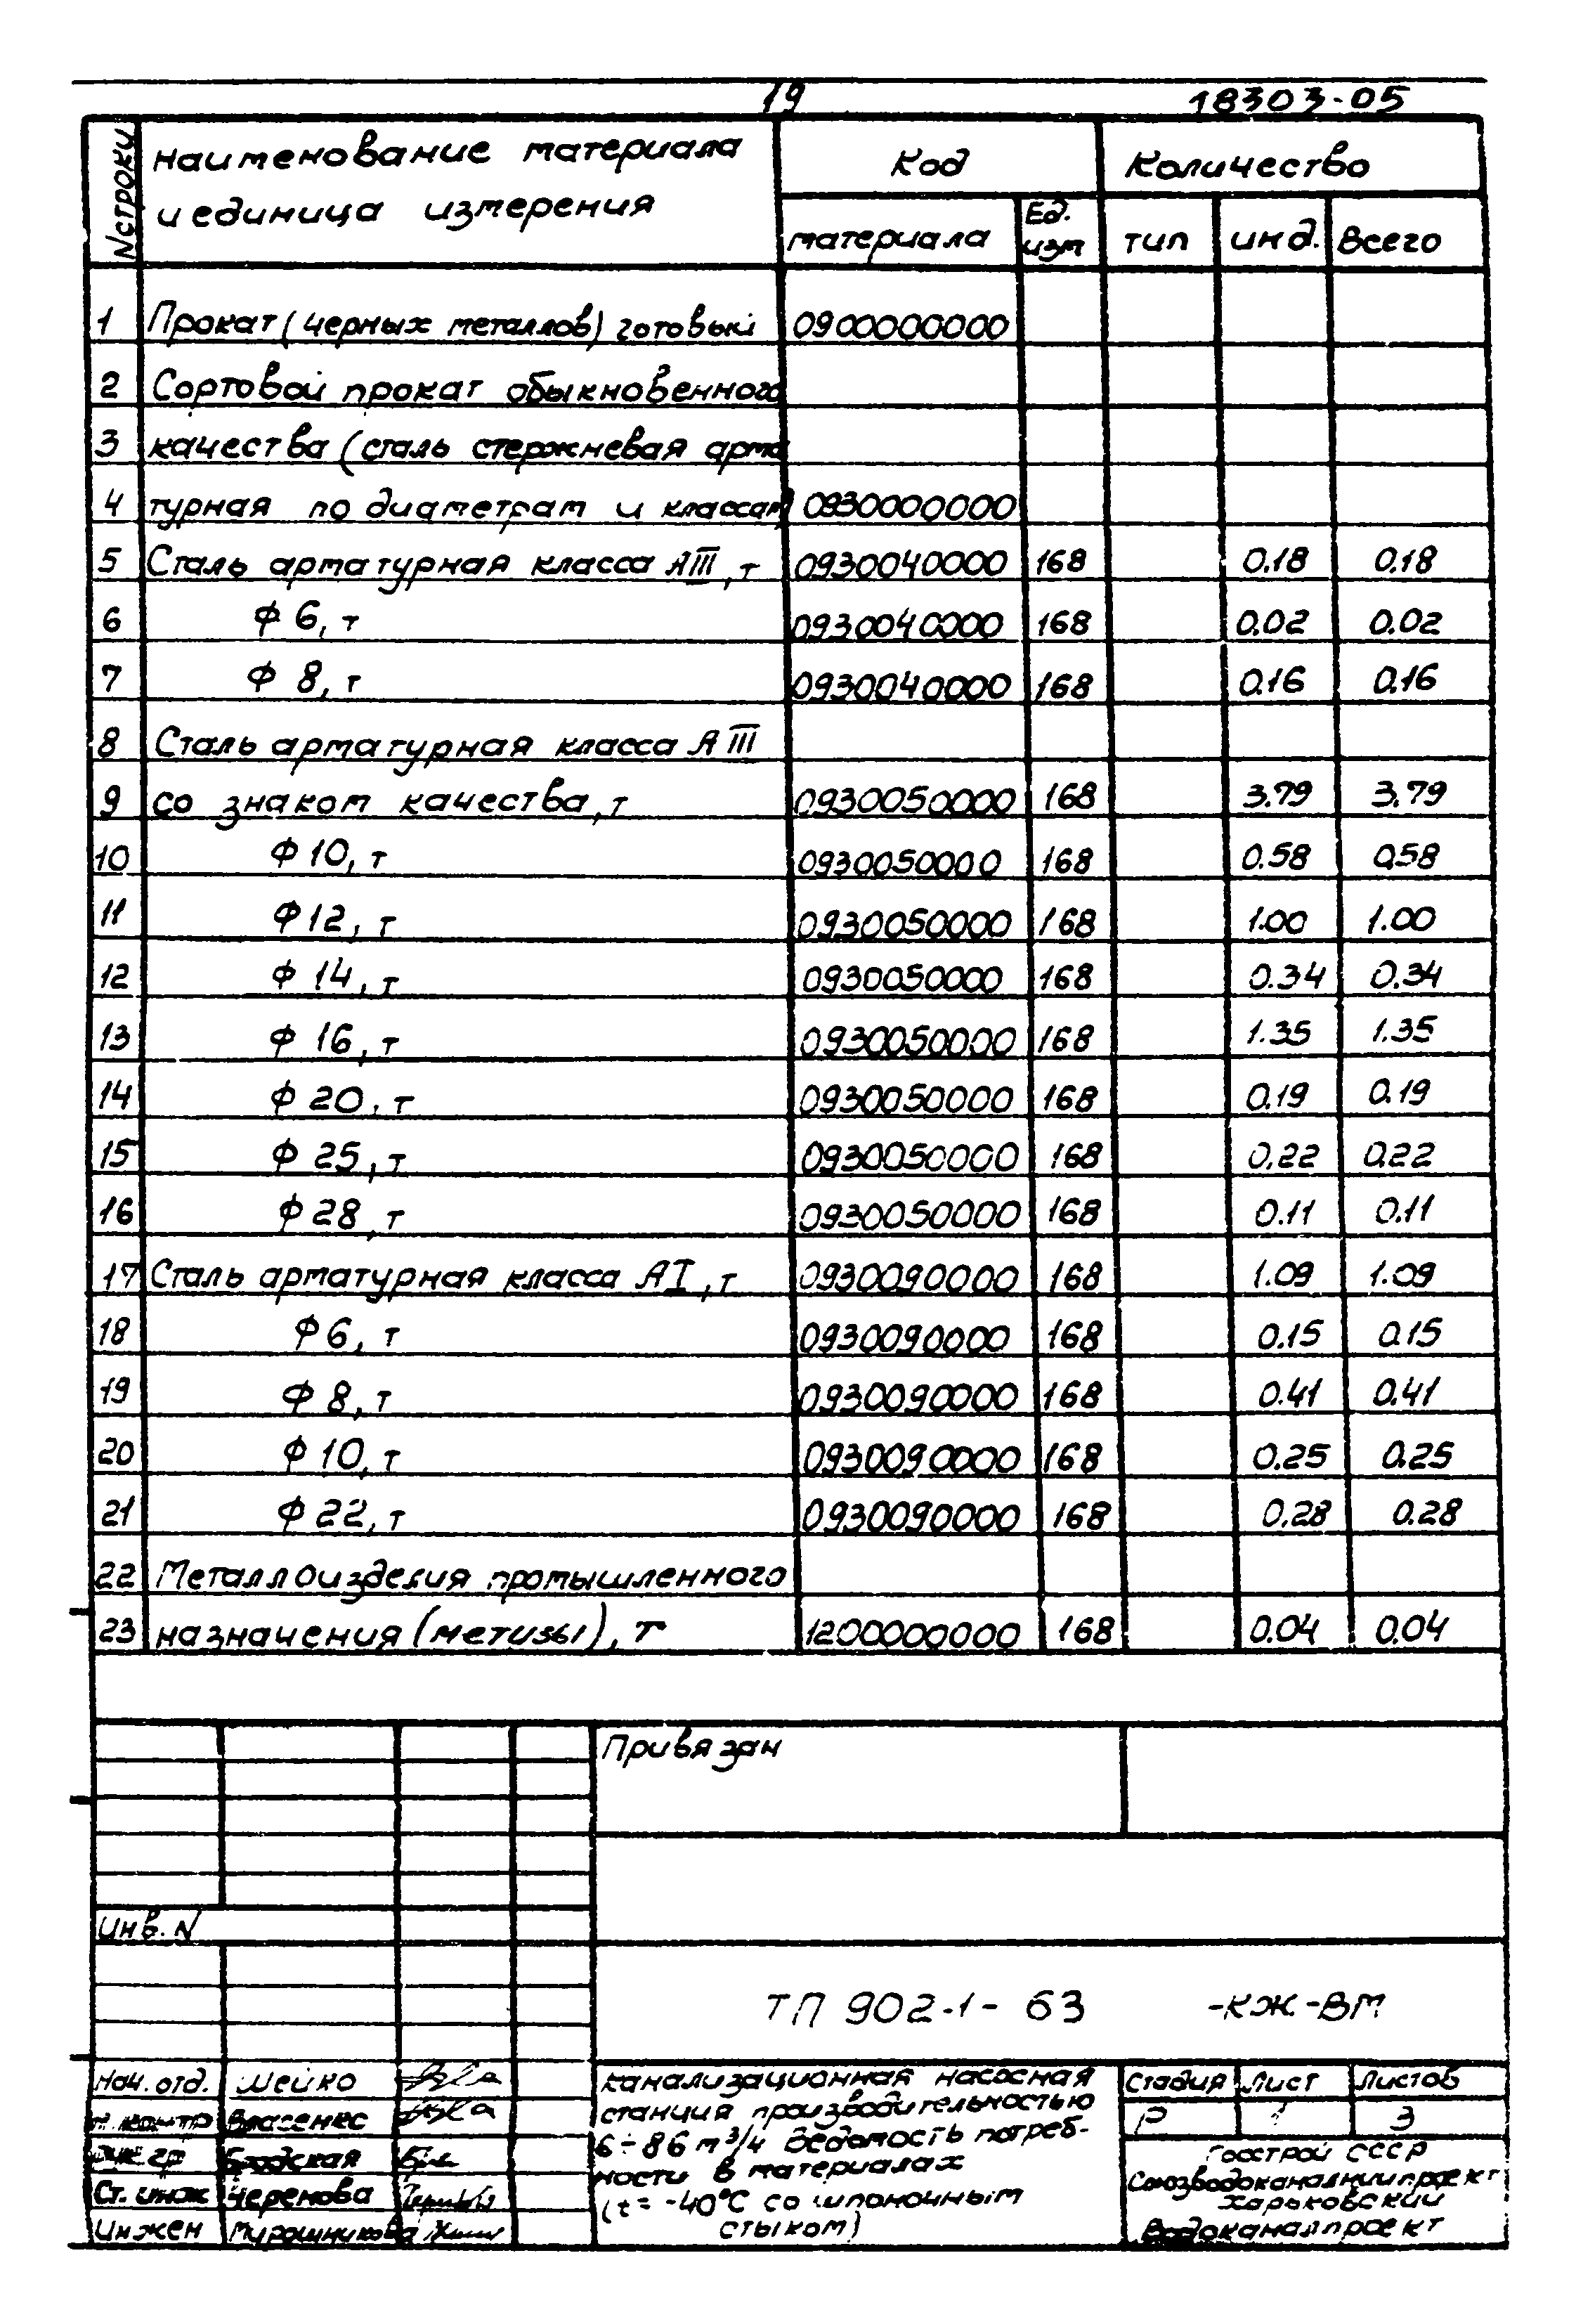 19 18303-05
N строки Наименование материала и единица измерения Код Количество
материала Ед. изм тип инд. Всего
1 Прокат (черных металлов) готовый 0900000000
2 Сортовой прокат обыкновенного
3 качества (сталь стержневая арма
4 турная по диаметрам и классам) 0930000000
5 Сталь арматурная класса АIII, т 0930040000 168 0.18 0.18
6 Ф 6, т 0930040000 168 0.02 0.02
7 Ф 8, т 0930040000 168 0.16 0.16
8 Сталь арматурная класса А III
9 со знаком качества, т 0930050000 168 3.79 3.79
10 Ф 10, т 0930050000 168 0.58 0.58
11 Ф 12, т 0930050000 168 1.00 1.00
12 Ф 14, т 0930050000 168 0.34 0.34
13 Ф 16, т 0930050000 168 1.35 1.35
14 Ф 20, т 0930050000 168 0.19 0.19
15 Ф 25, т 0930050000 168 0.22 0.22
16 Ф 28, т 0930050000 168 0.11 0.11
17 Сталь арматурная класса АI, т 0930090000 168 1.09 1.09
18 Ф 6, т 0930090000 168 0.15 0.15
19 Ф 8, т 0930090000 168 0.41 0.41
20 Ф 10, т 0930090000 168 0.25 0.25
21 Ф 22, т 0930090000 168 0.28 0.28
22 Металлоизделия промышленного
23 назначения (метизы), т 1200000000 168 0.04 0.04
Привязан
Инв. N
ТП 902-1-63 -КЖ-ВМ
Нач. отд. Шейко
Н. контр Власенко
Рук. гр Бродская
Ст. инж Черенова
Инжен Мирошникова
Канализационная насосная
станция производительностью
6÷86 м³/ч Ведомость потреб-
ности в материалах
(t=-40°C со шпоночным
стыком)
Стадия Лист Листов
Р 1 3
Госстрой СССР
Союзводоканалниипроект
Харьковский
Водоканалпроект